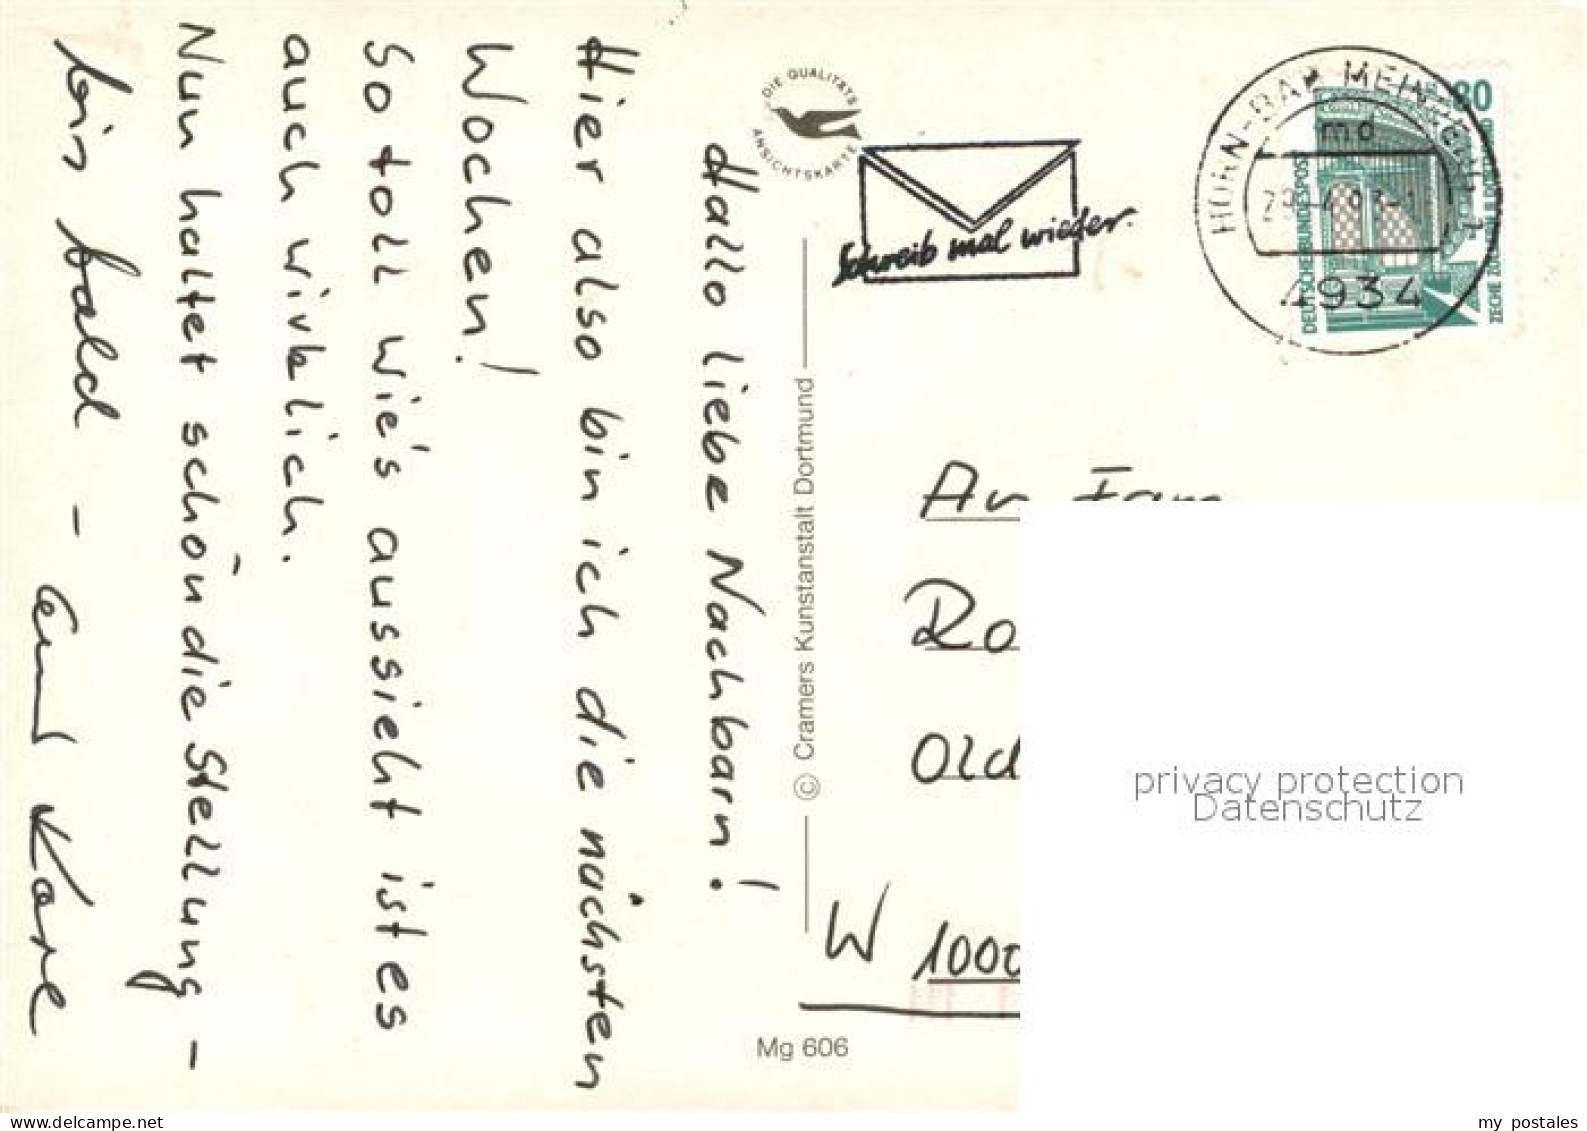 Hallo liebe Nachbarn!
Hier also bin ich die nächsten
Wochen!
So toll wie's aussieht ist es
auch wirklich.
Nun haltet schön die Stellung -
bis bald -
DIE QUALITÄTS
ANSICHTSKARTE
Schreib mal wieder.
HORN-BAD MEINBERG 1
md
4934
80
DEUTSCHE BUNDESPOST
© Cramers Kunstanstalt Dortmund
Mg 606
An Fam
W 1000
privacy protection
Datenschutz
www.delcampe.net
my postales